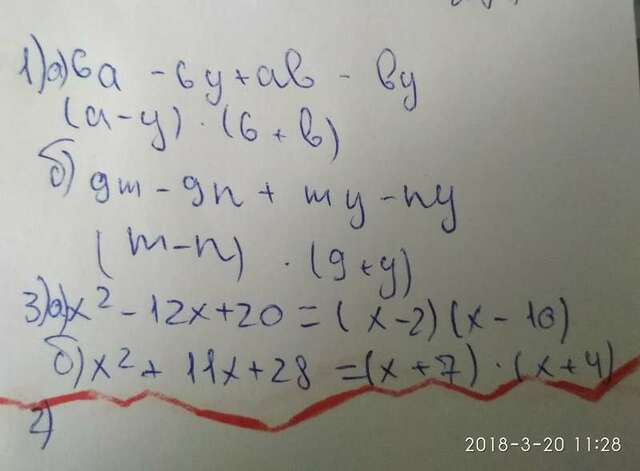 1) а) 6a - 6y + ab - by
(a - y) · (6 + b)
б) 9m - 9n + my - ny
(m - n) · (9 + y)
3) а) x² - 12x + 20 = (x - 2)(x - 10)
б) x² + 11x + 28 = (x + 7) · (x + 4)
2)
2018-3-20 11:28